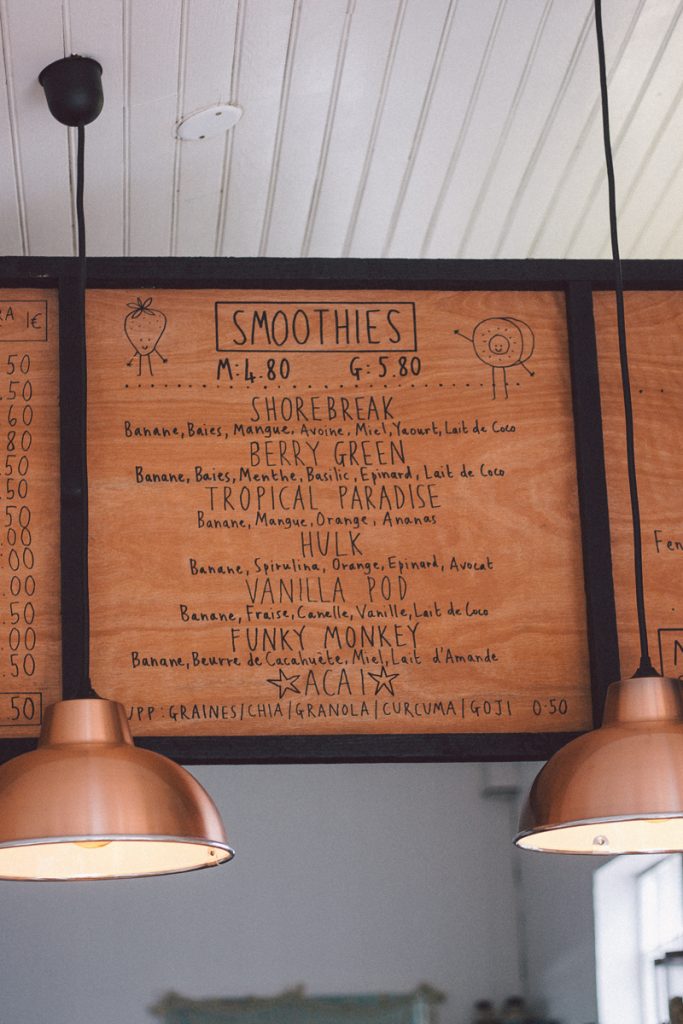 1€
.50
.50
60
80
.50
.50
50
.08
:00
.00
.50
:00
.50
.50
SMOOTHIES
M:4.80 G:5.80
SHOREBREAK
Banane, Baies, Mangue, Avoine, Miel, Yaourt, Lait de Coco
BERRY GREEN
Banane, Baies, Menthe, Basilic, Epinard, Lait de Coco
TROPICAL PARADISE
Banane, Mangue, Orange, Ananas
HULK
Banane, Spirulina, Orange, Epinard, Avocat
VANILLA POD
Banane, Fraise, Canelle, Vanille, Lait de Coco
FUNKY MONKEY
Banane, Beurre de Cacahuète, Miel, Lait d'Amande
ACAI
UPP: GRAINES/CHIA/GRANOLA/CURCUMA/GOJI 0.50
Fen